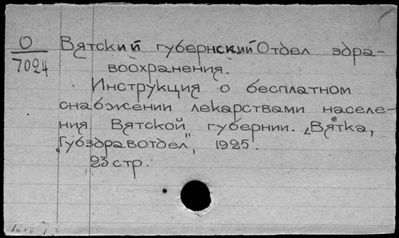 О
7024
Вятский губернский Отдел здра-
воохранения.
Инструкция о бесплатном
снабжении лекарствами населе-
ния Вятской губернии. „Вятка,
„Губздравотдел", 1925.
23 стр.